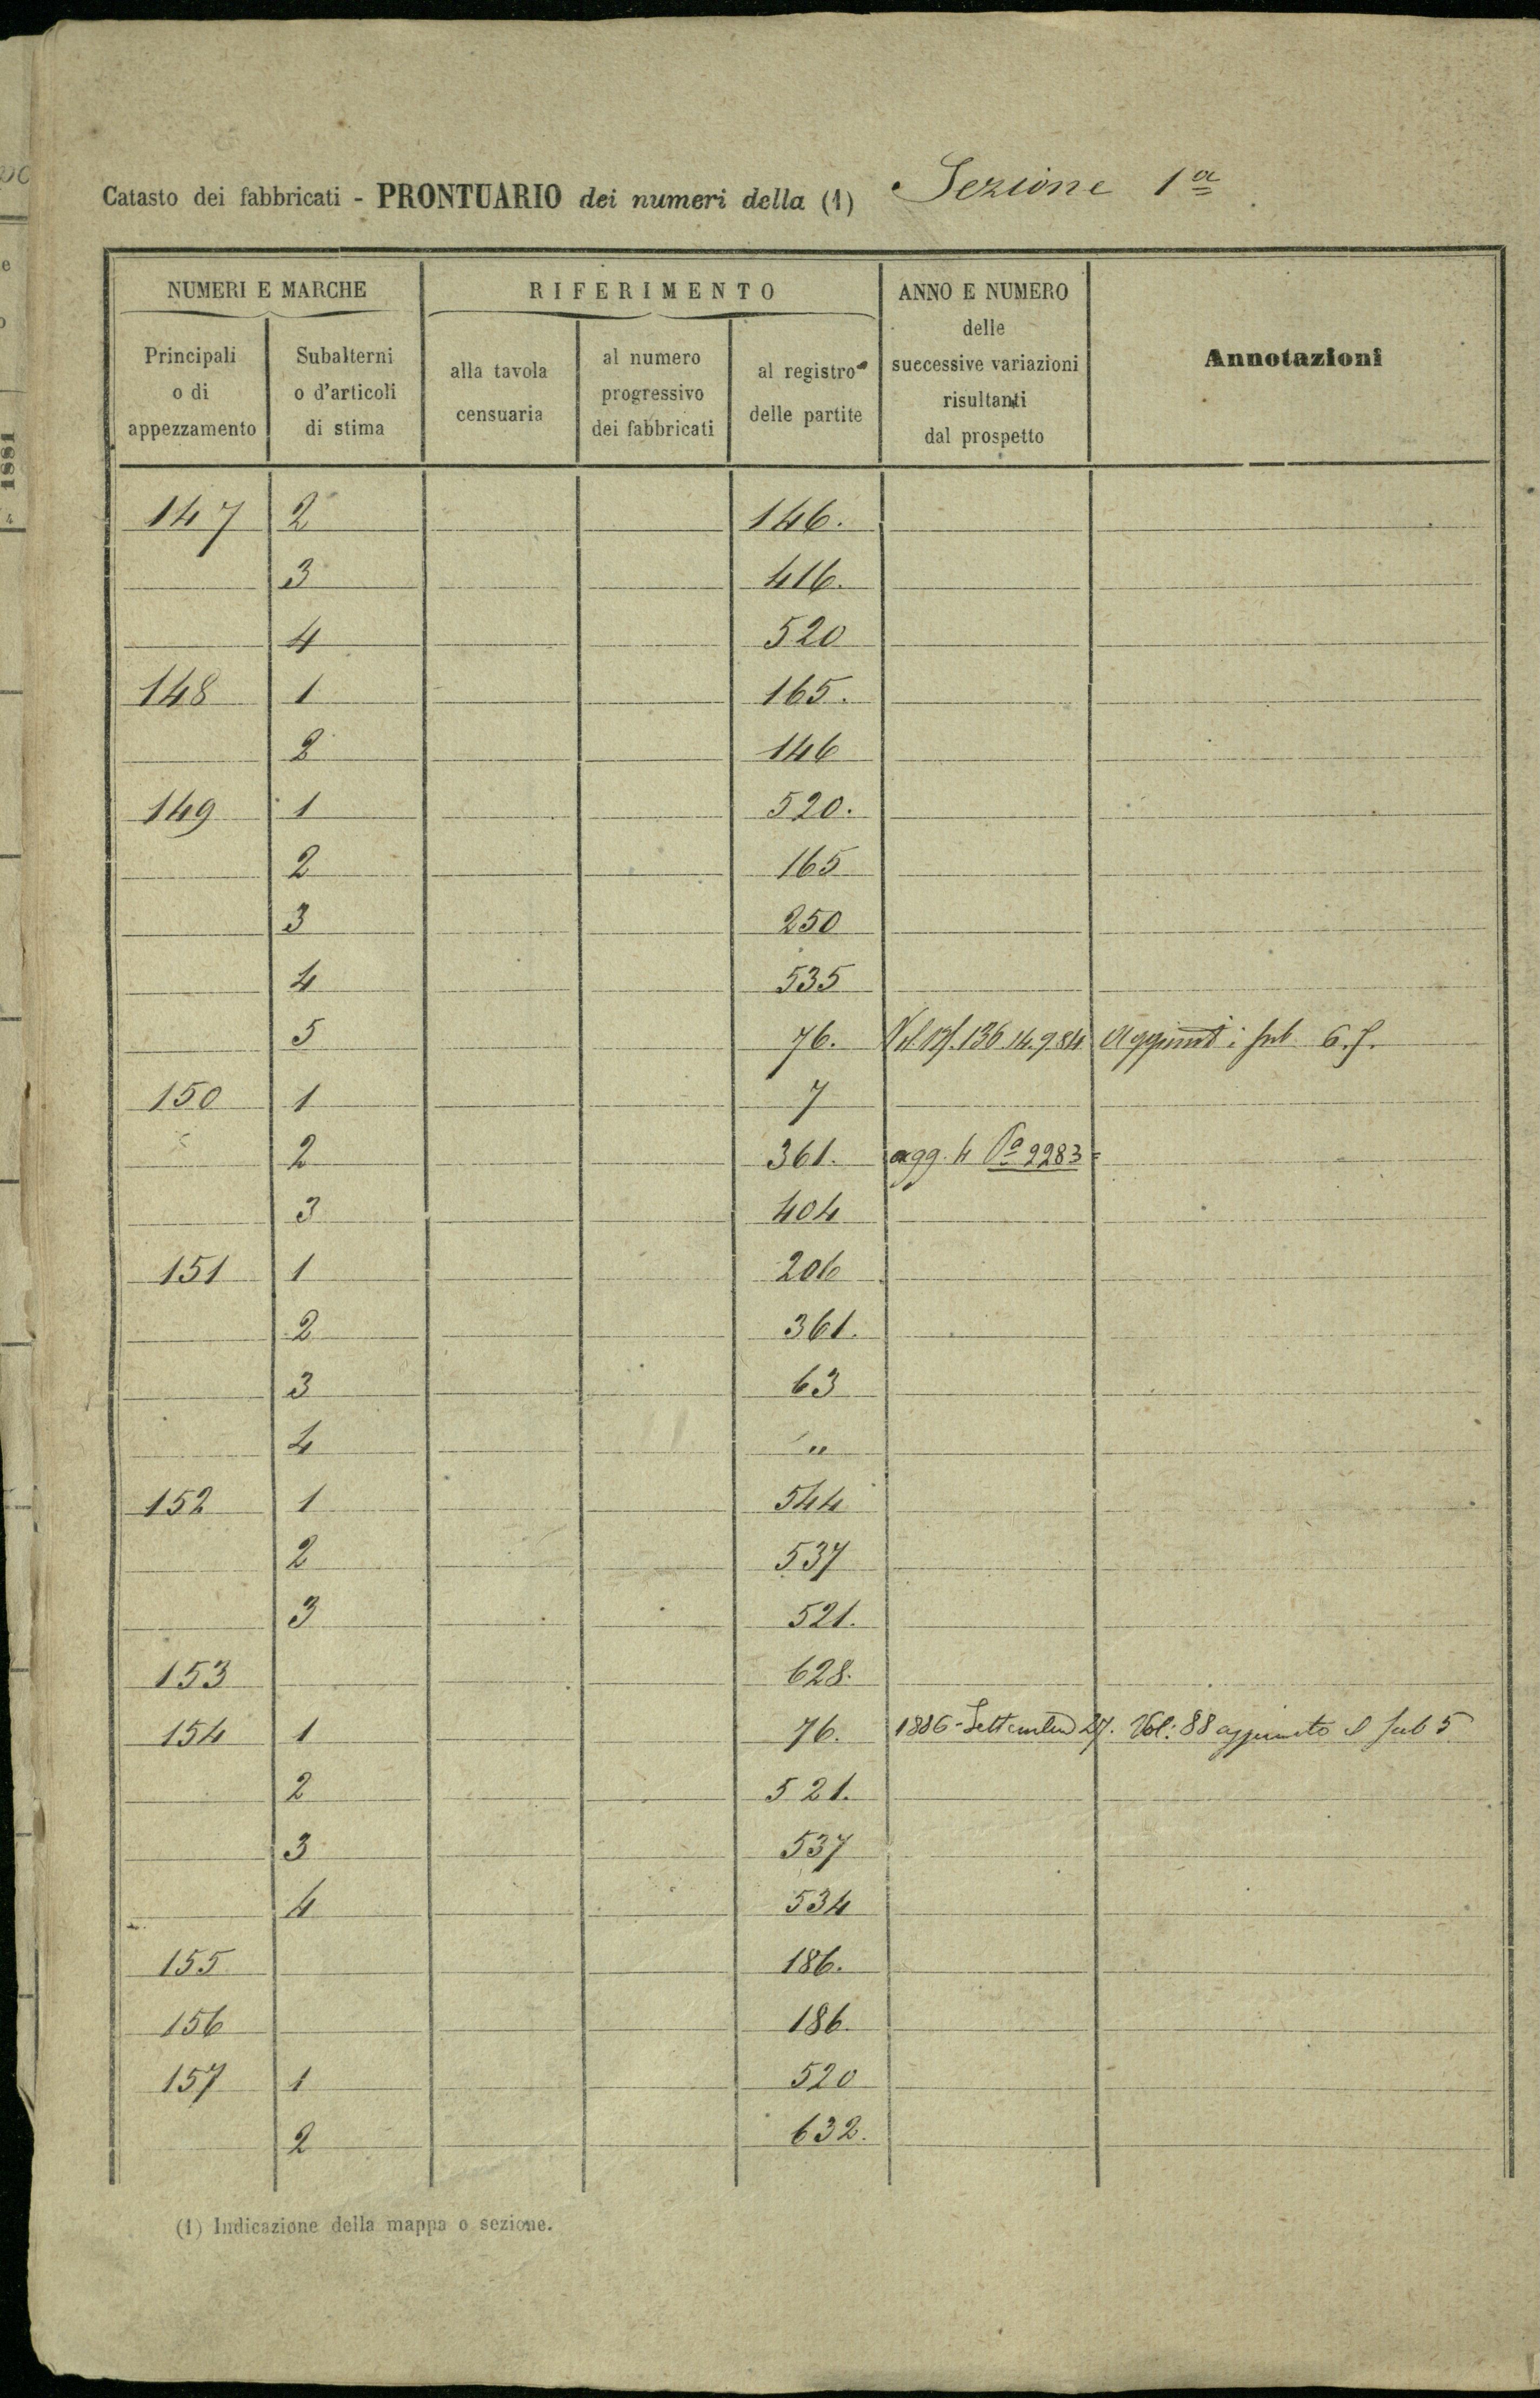 Catasto dei fabbricati - PRONTUARIO dei numeri della (1) Sezione 1a
NUMERI E MARCHE RIFERIMENTO ANNO E NUMERO delle successive variazioni risultanti dal prospetto Annotazioni
Principali o di appezzamento Subalterni o d'articoli di stima alla tavola censuaria al numero progressivo dei fabbricati al registro delle partite
147 2 146.
3 416.
4 520
148 1 165.
2 146
149 1 520.
2 165
3 250
4 535
5 76. 136.14.9.84 Aggiunti i sub 6.7.
150 1 7
2 361. agg. 4 Pa 2283=
3 404
151 1 206
2 361.
3 63
4 "
152 1 544
2 537
3 521.
153 628.
154 1 76. 1886-Settembre 27. Vol: 88 aggiunto il sub 5
2 521.
3 537
4 534
155 186.
156 186.
157 1 520
2 632.
(1) Indicazione della mappa o sezione.
1881